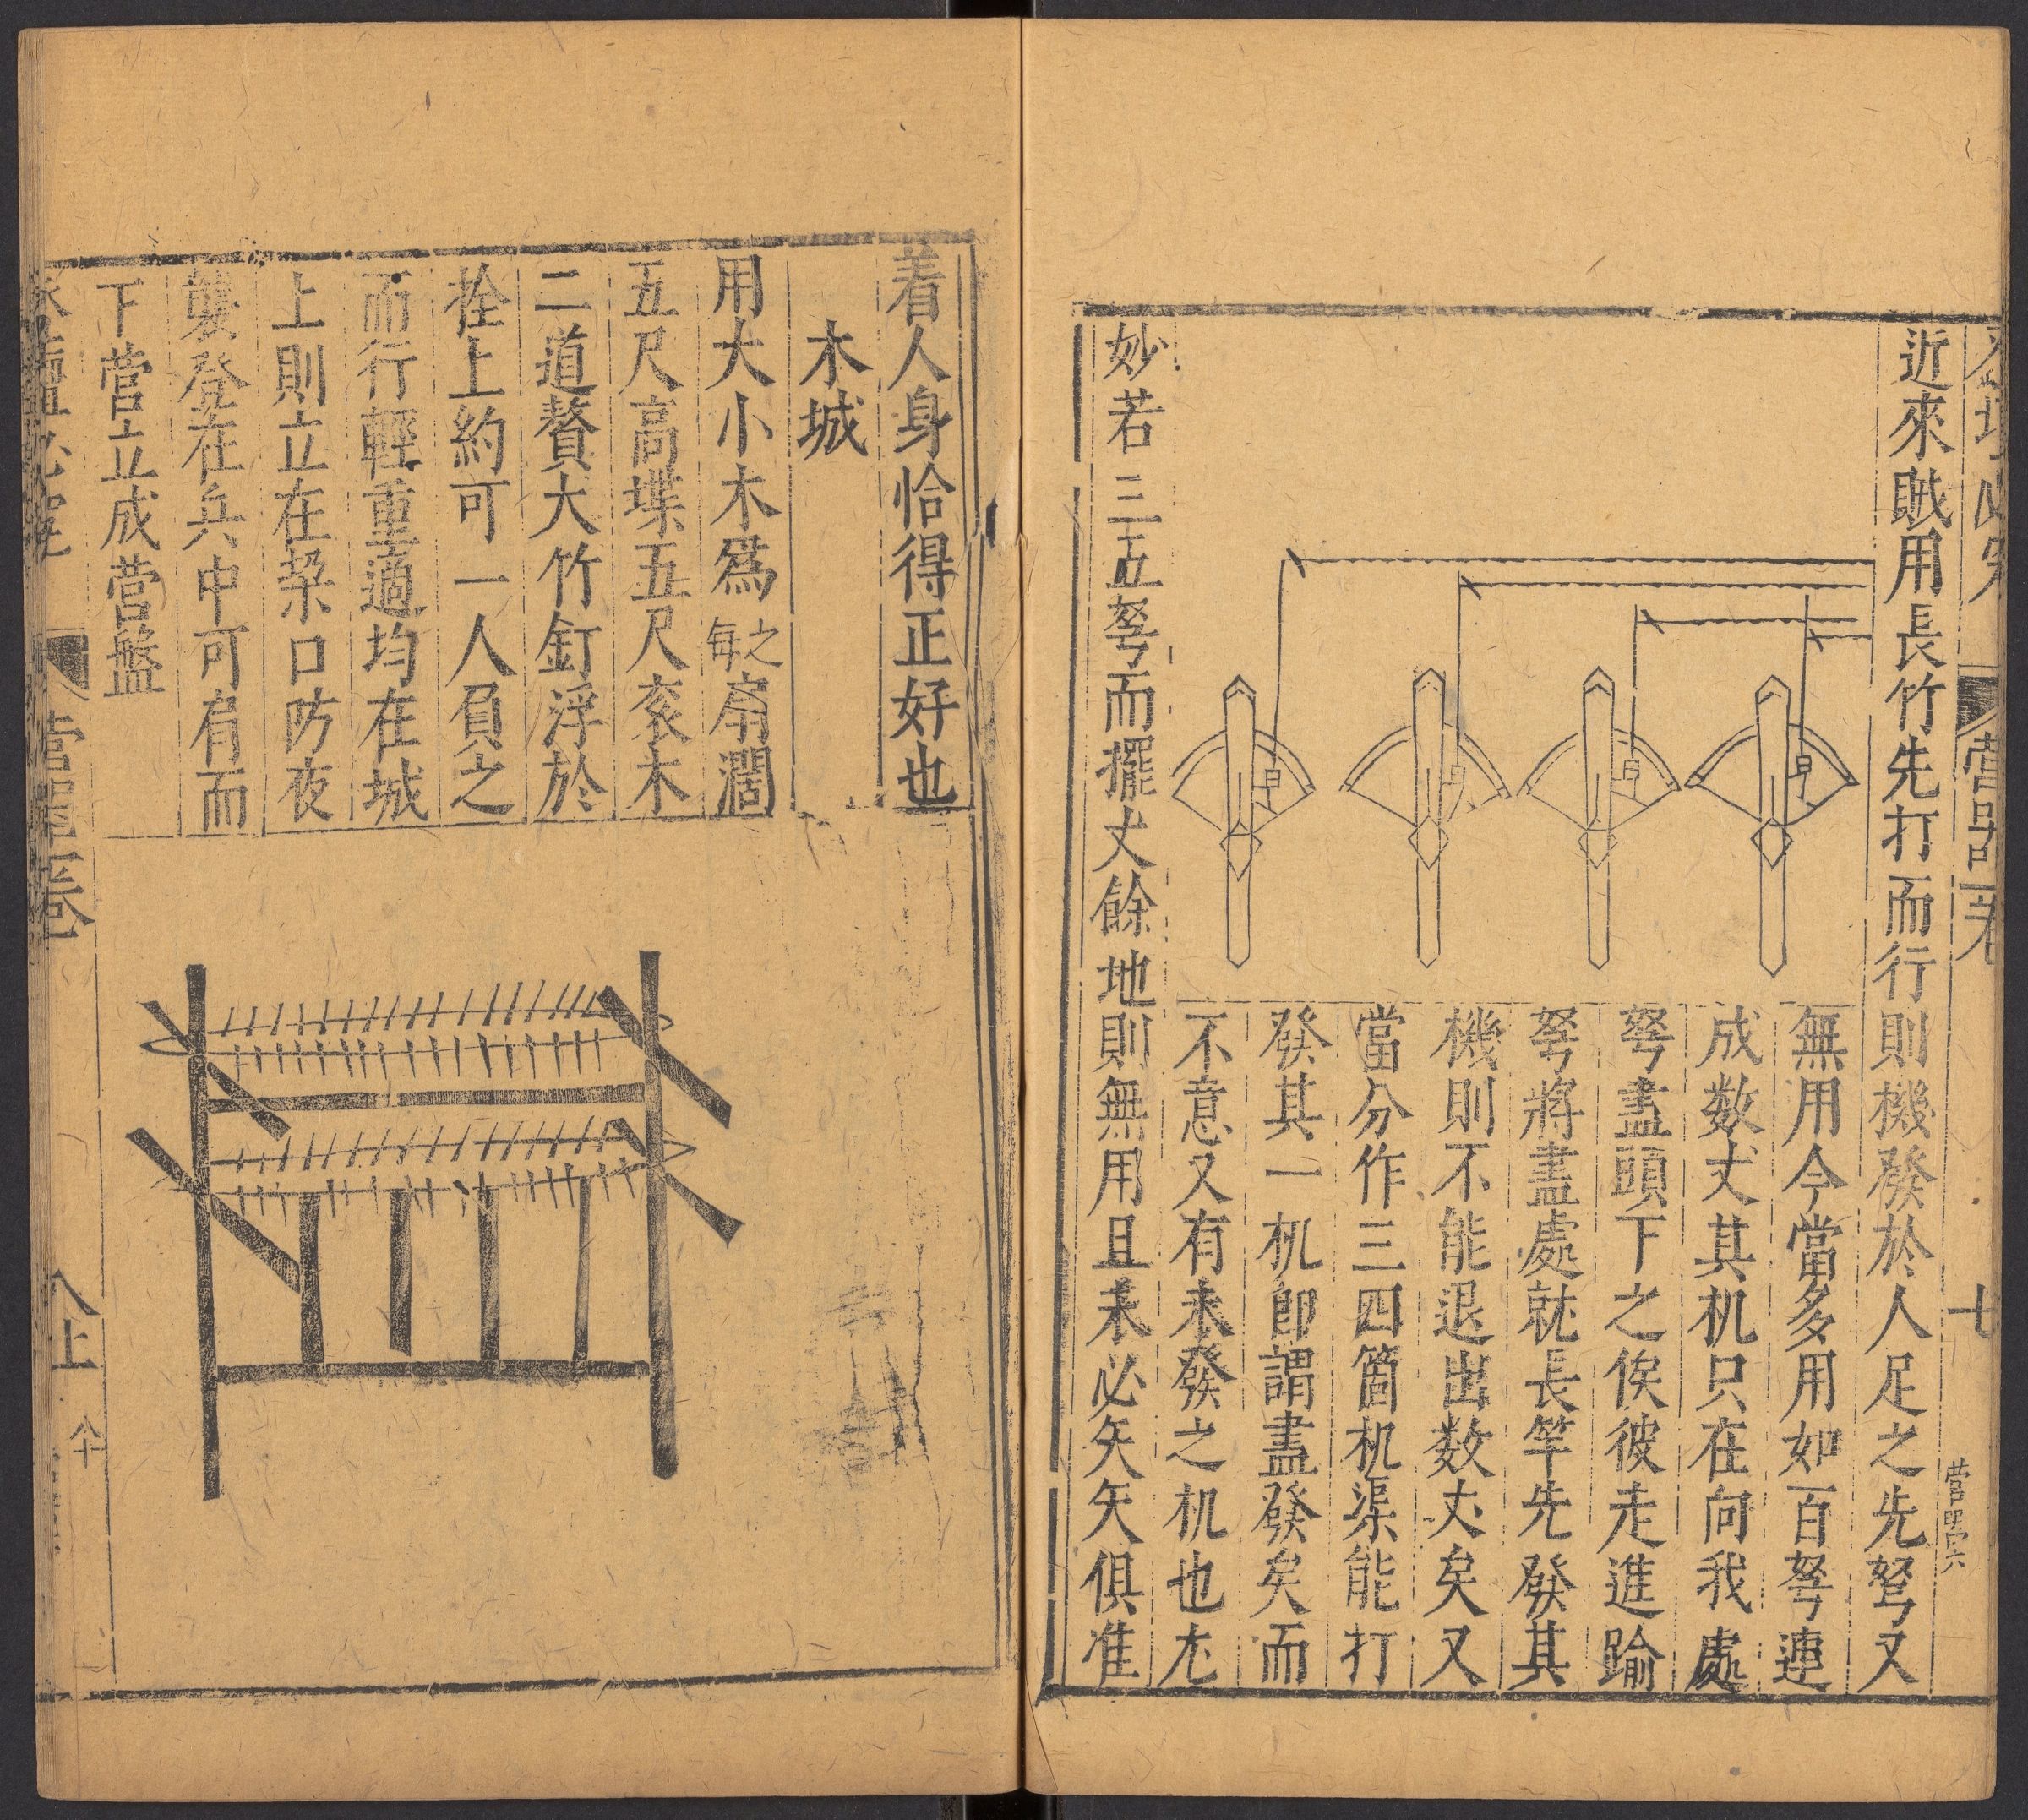 近來賊用長竹先打而行則機發於人足之先弩又
無用今當多用如百弩連
成数丈其机只在向我處
弩盡頭下之俟彼走進踰
弩將盡處就長竿先發其
機則不能退出数丈矣又
當分作三四箇机渠能打
發其一机卽謂盡發矣而
不意又有未發之机也尤
妙若三五弩而擺丈餘地則無用且未必矢矢俱准
七
着人身恰得正好也
木城
用大小木爲之每扇濶
五尺高堞五尺衮木
二道贅大竹釘浮於
拴上約可一人負之
而行輕重適均在城
上則立在梁口防夜
襲登在兵中可肩而
下營立成營盤
八上